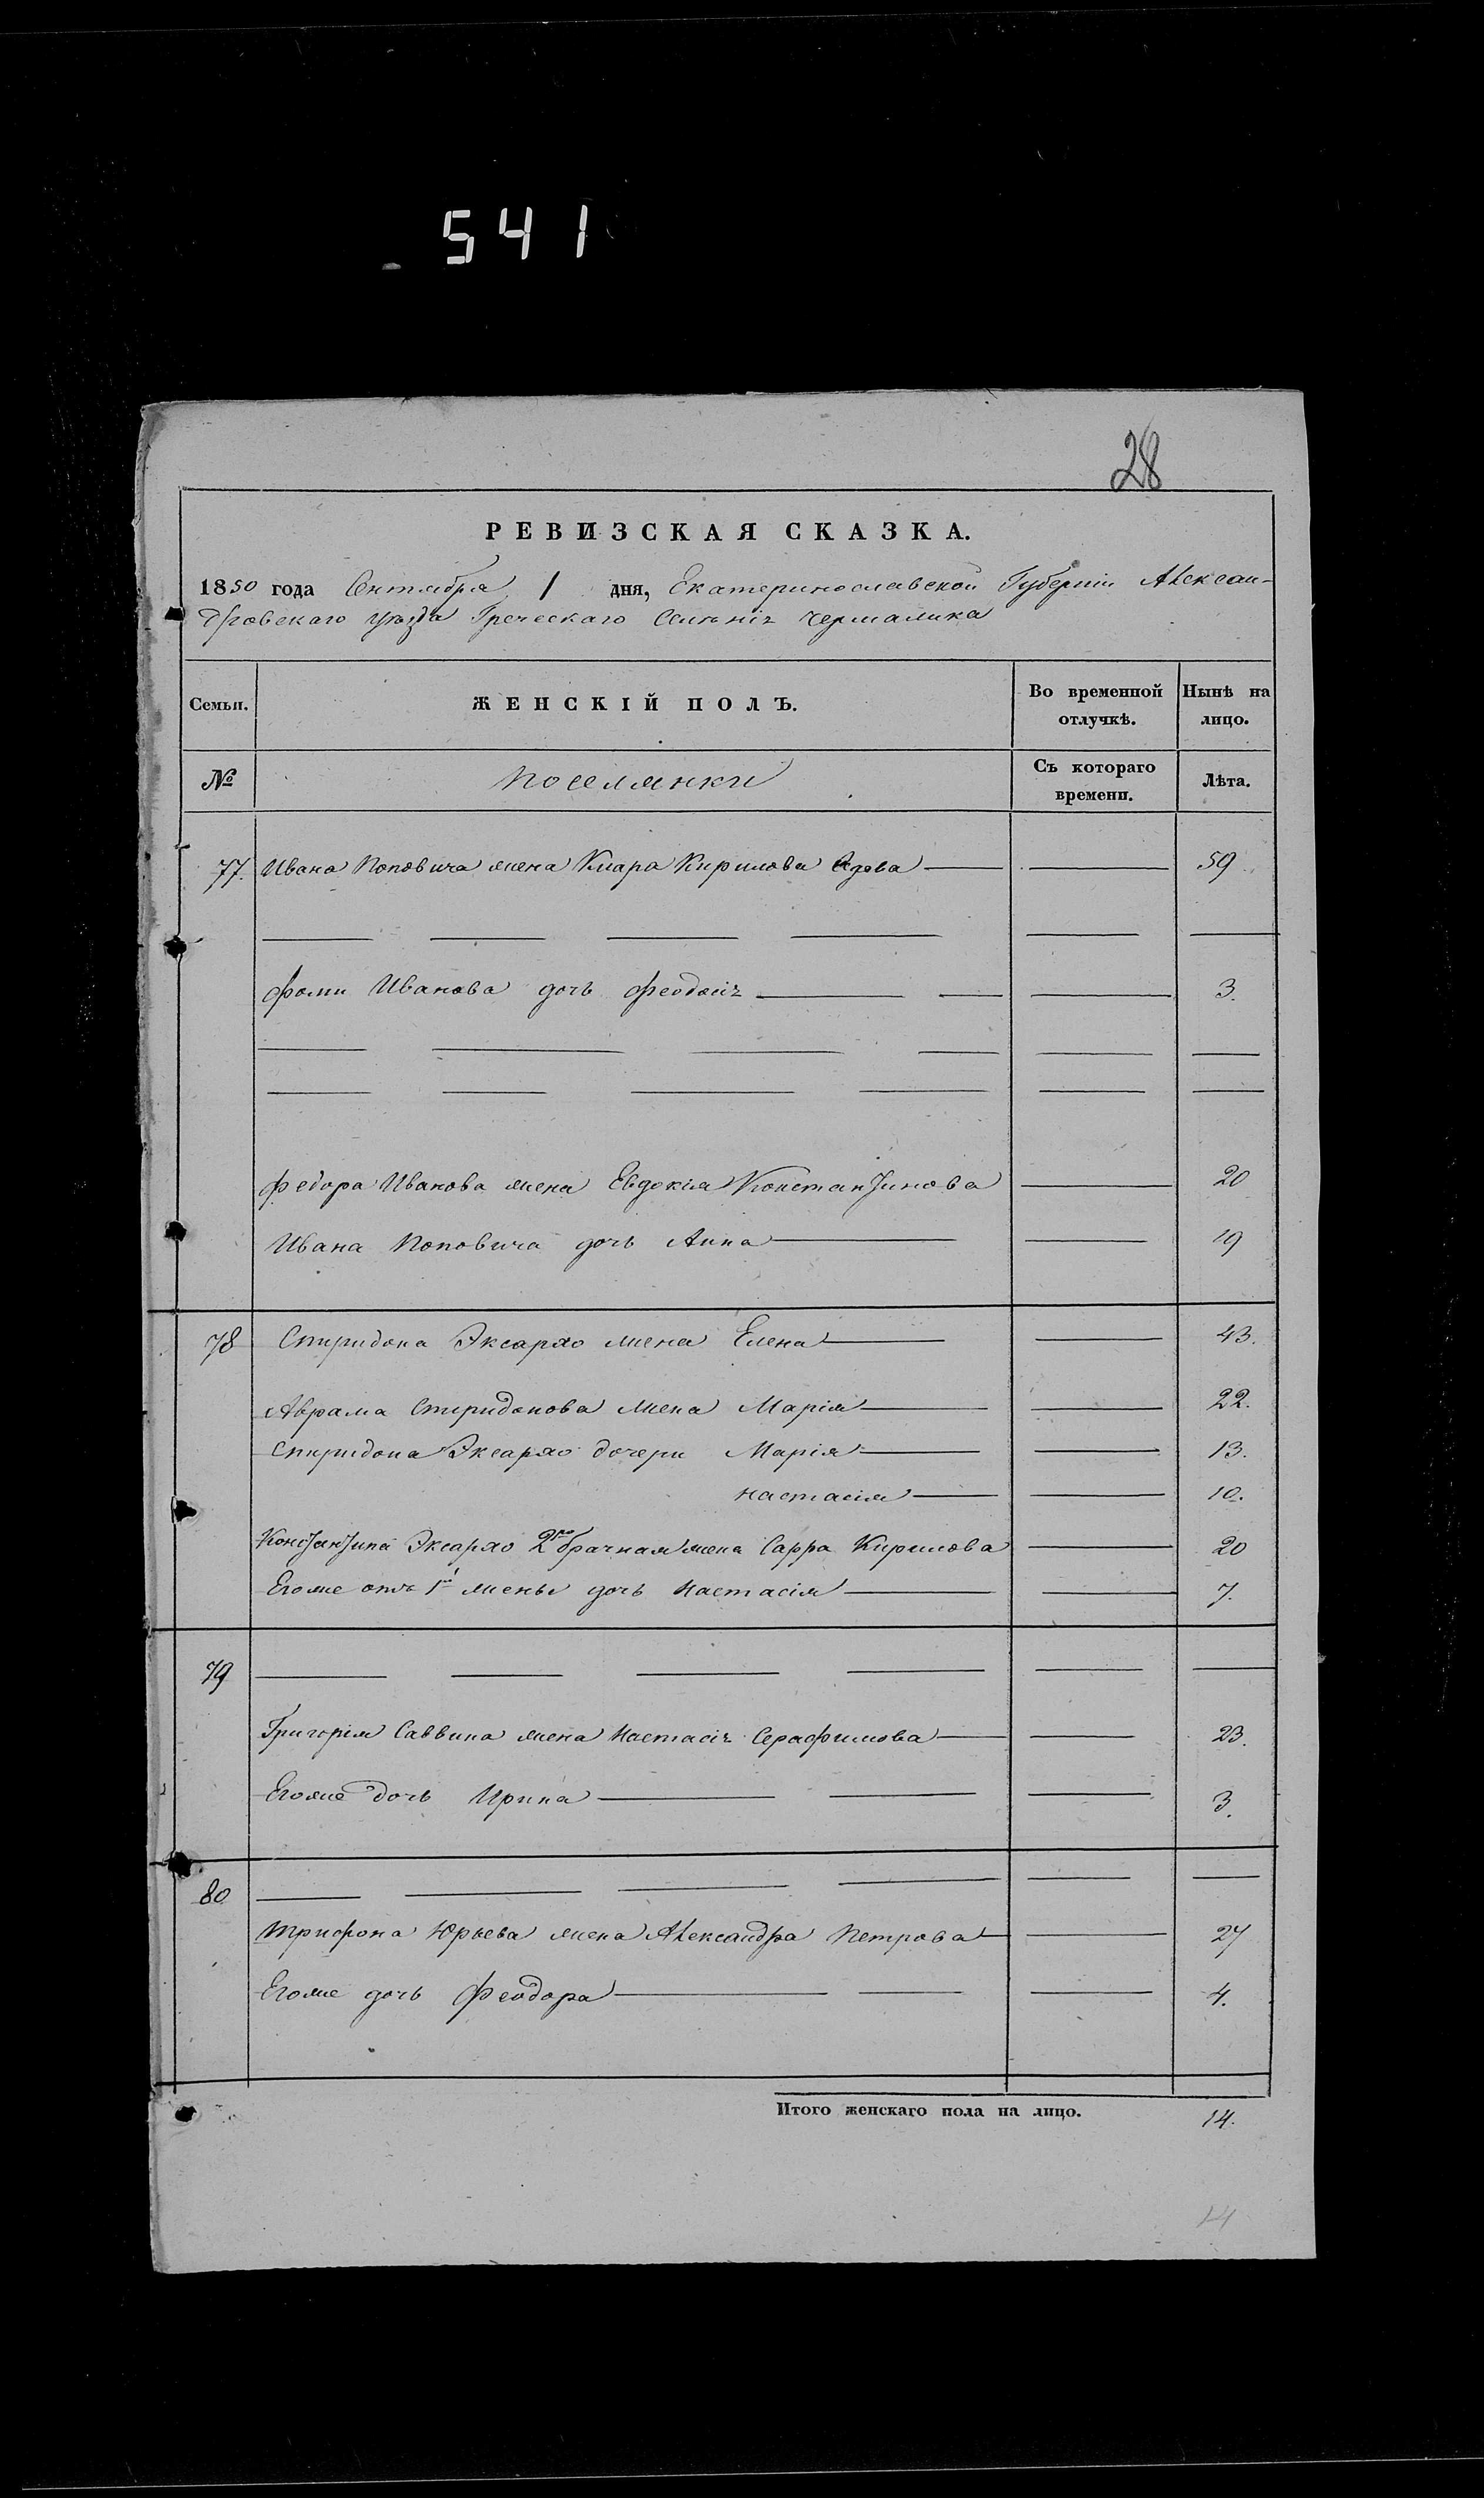 541
28
РЕВИЗСКАЯ СКАЗКА.
1850 года Сентября 1 дня, Екатеринославской Губернiи Алексан-
дровскаго уѣзда Греческаго Селѣнiя Чермалика
Семьи. ЖЕНСКIЙ ПОЛЪ. Во временной отлучкѣ. Нынѣ на лицо.
№ Поселянки Съ котораго времени. Лѣта.
77. Ивана Поповича жена Кiара Кирилова вдова — — 59
— — — — — —
Фомы Иванова дочь Феодосiя — — — 3.
— — — — — —
— — — — — —
Федора Иванова жена Евдокiя Константинова — 20
Ивана Поповича дочь Анна — — 19
78 Спиридона Эксархо жена Елена — — 43.
Аврама Спиридонова жена Марiя — — 22.
Спиридона Эксархо дочери Марiя — — 13.
Настасiя — — 10.
Константина Эксархо 2го брачная жена Сарра Кирилова — 20
Егоже отъ 1й жены дочь Настасiя — — 7.
79 — — — — — —
Григорiя Саввина жена Настасiя Серафимова — — 23.
Егоже дочь Ирина — — — 3.
80 — — — — — —
Трифона Юрьева жена Александра Петрова — — 27
Егоже дочь Феодора — — — 4.
Итого женскаго пола на лицо. 14.
14